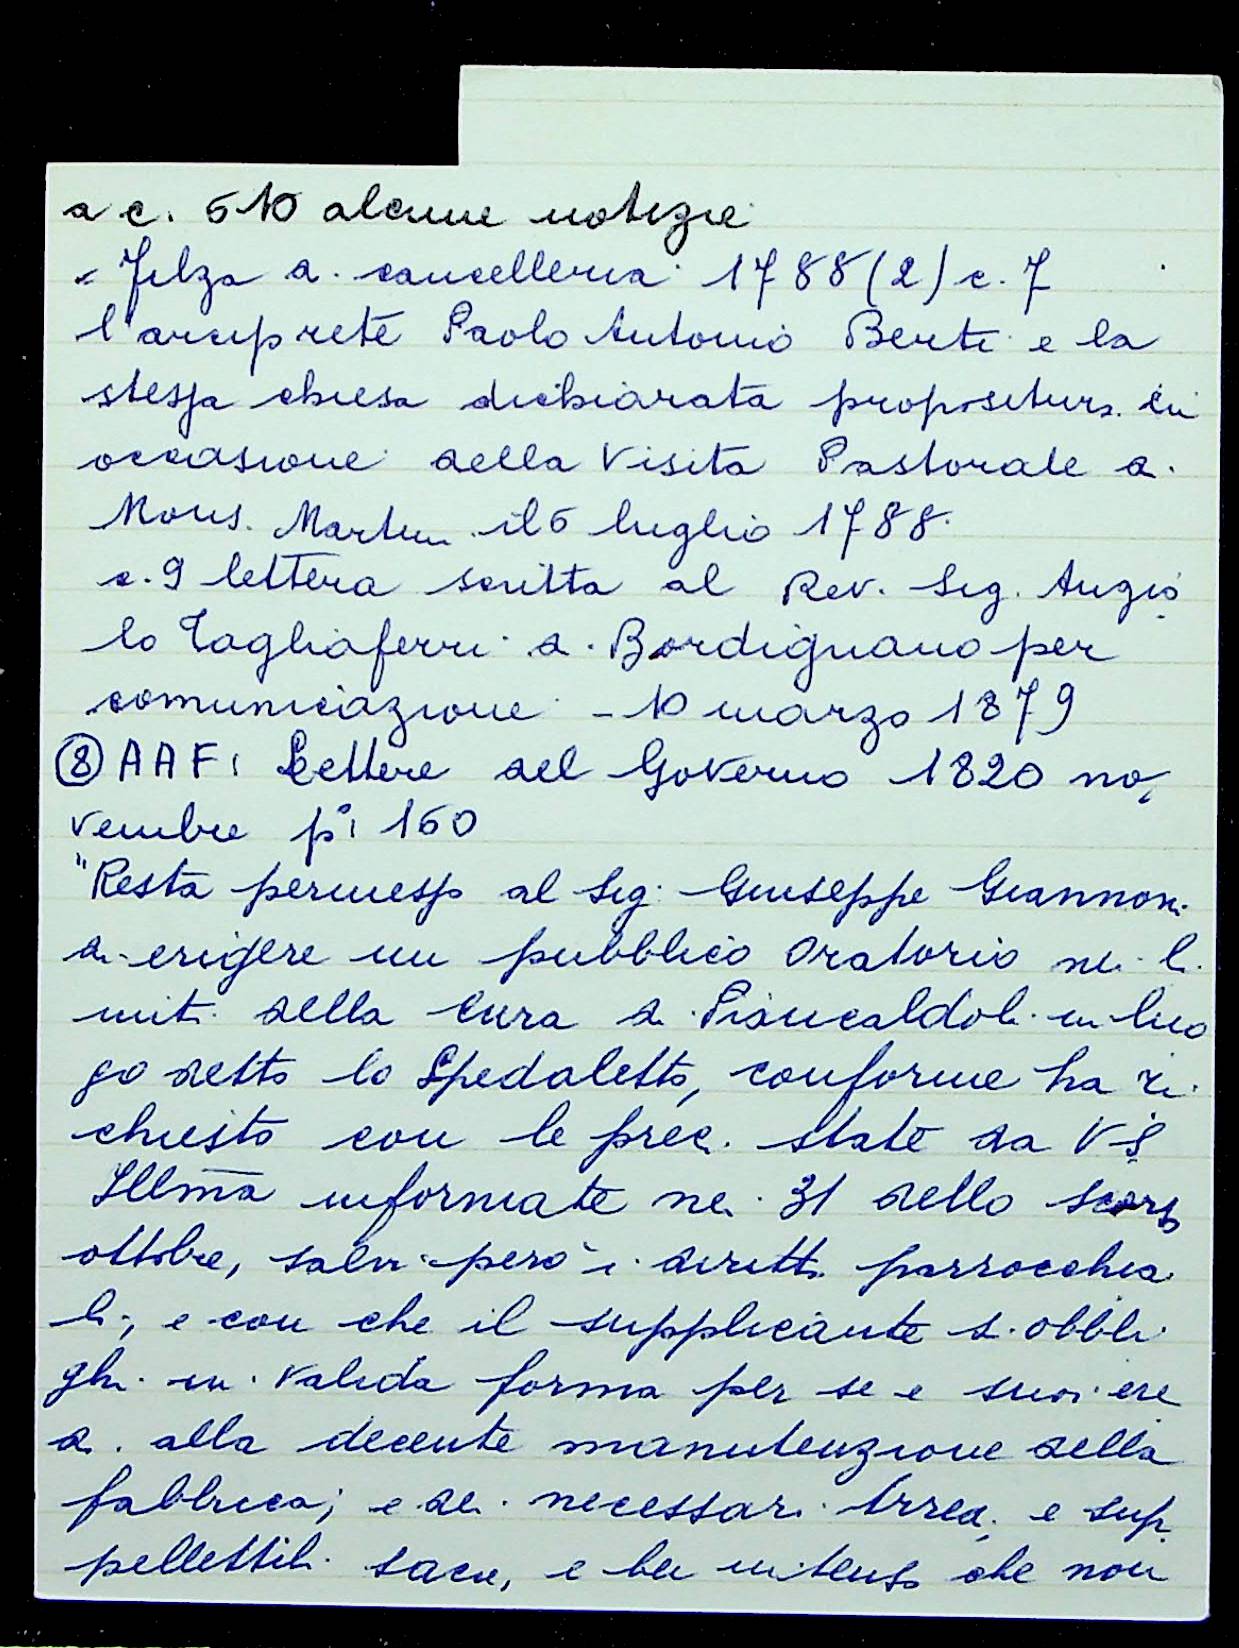 a c. 610 alcune notizie
" Filza di cancelleria 1788 (2) c. 7
l'arciprete Paolo Antonio Berti e la
stessa chiesa dichiarata propositura in
occasione della Visita Pastorale di
Mons. Martini il 6 luglio 1788.
c. 9 lettera scritta al Rev. Sig. Angio
lo Tagliaferri di Bordignano per
comunicazione - 10 marzo 1879
⑧ AAF: Lettere del Governo 1820 no,
vembre p: 160
"Resta permesso al Sig: Giuseppe Giannoni
di erigere un pubblico Oratorio nei li
miti della Cura di Piancaldoli in luo
go detto lo Spedaletto, conforme ha ri
chiesto con le prec. state da V S
Illma informate nei 31 dello scorso
ottobre, salvi però i diritti parrocchia
li, e con che il supplicante si obbli
ghi in valida forma per se e suoi ere
di alla decente manutenzione della
fabbrica; e dei necessari Arredi e sup
pellettili sacre, e ben inteso che non